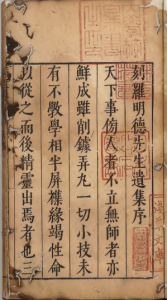 刻羅明德先生遺集序
天下事傍人者不立無師者亦
鮮成雖削鐻弄丸一切小技未
有不敎學相半屏機緣竭性命
以從之而後精靈出焉者也三